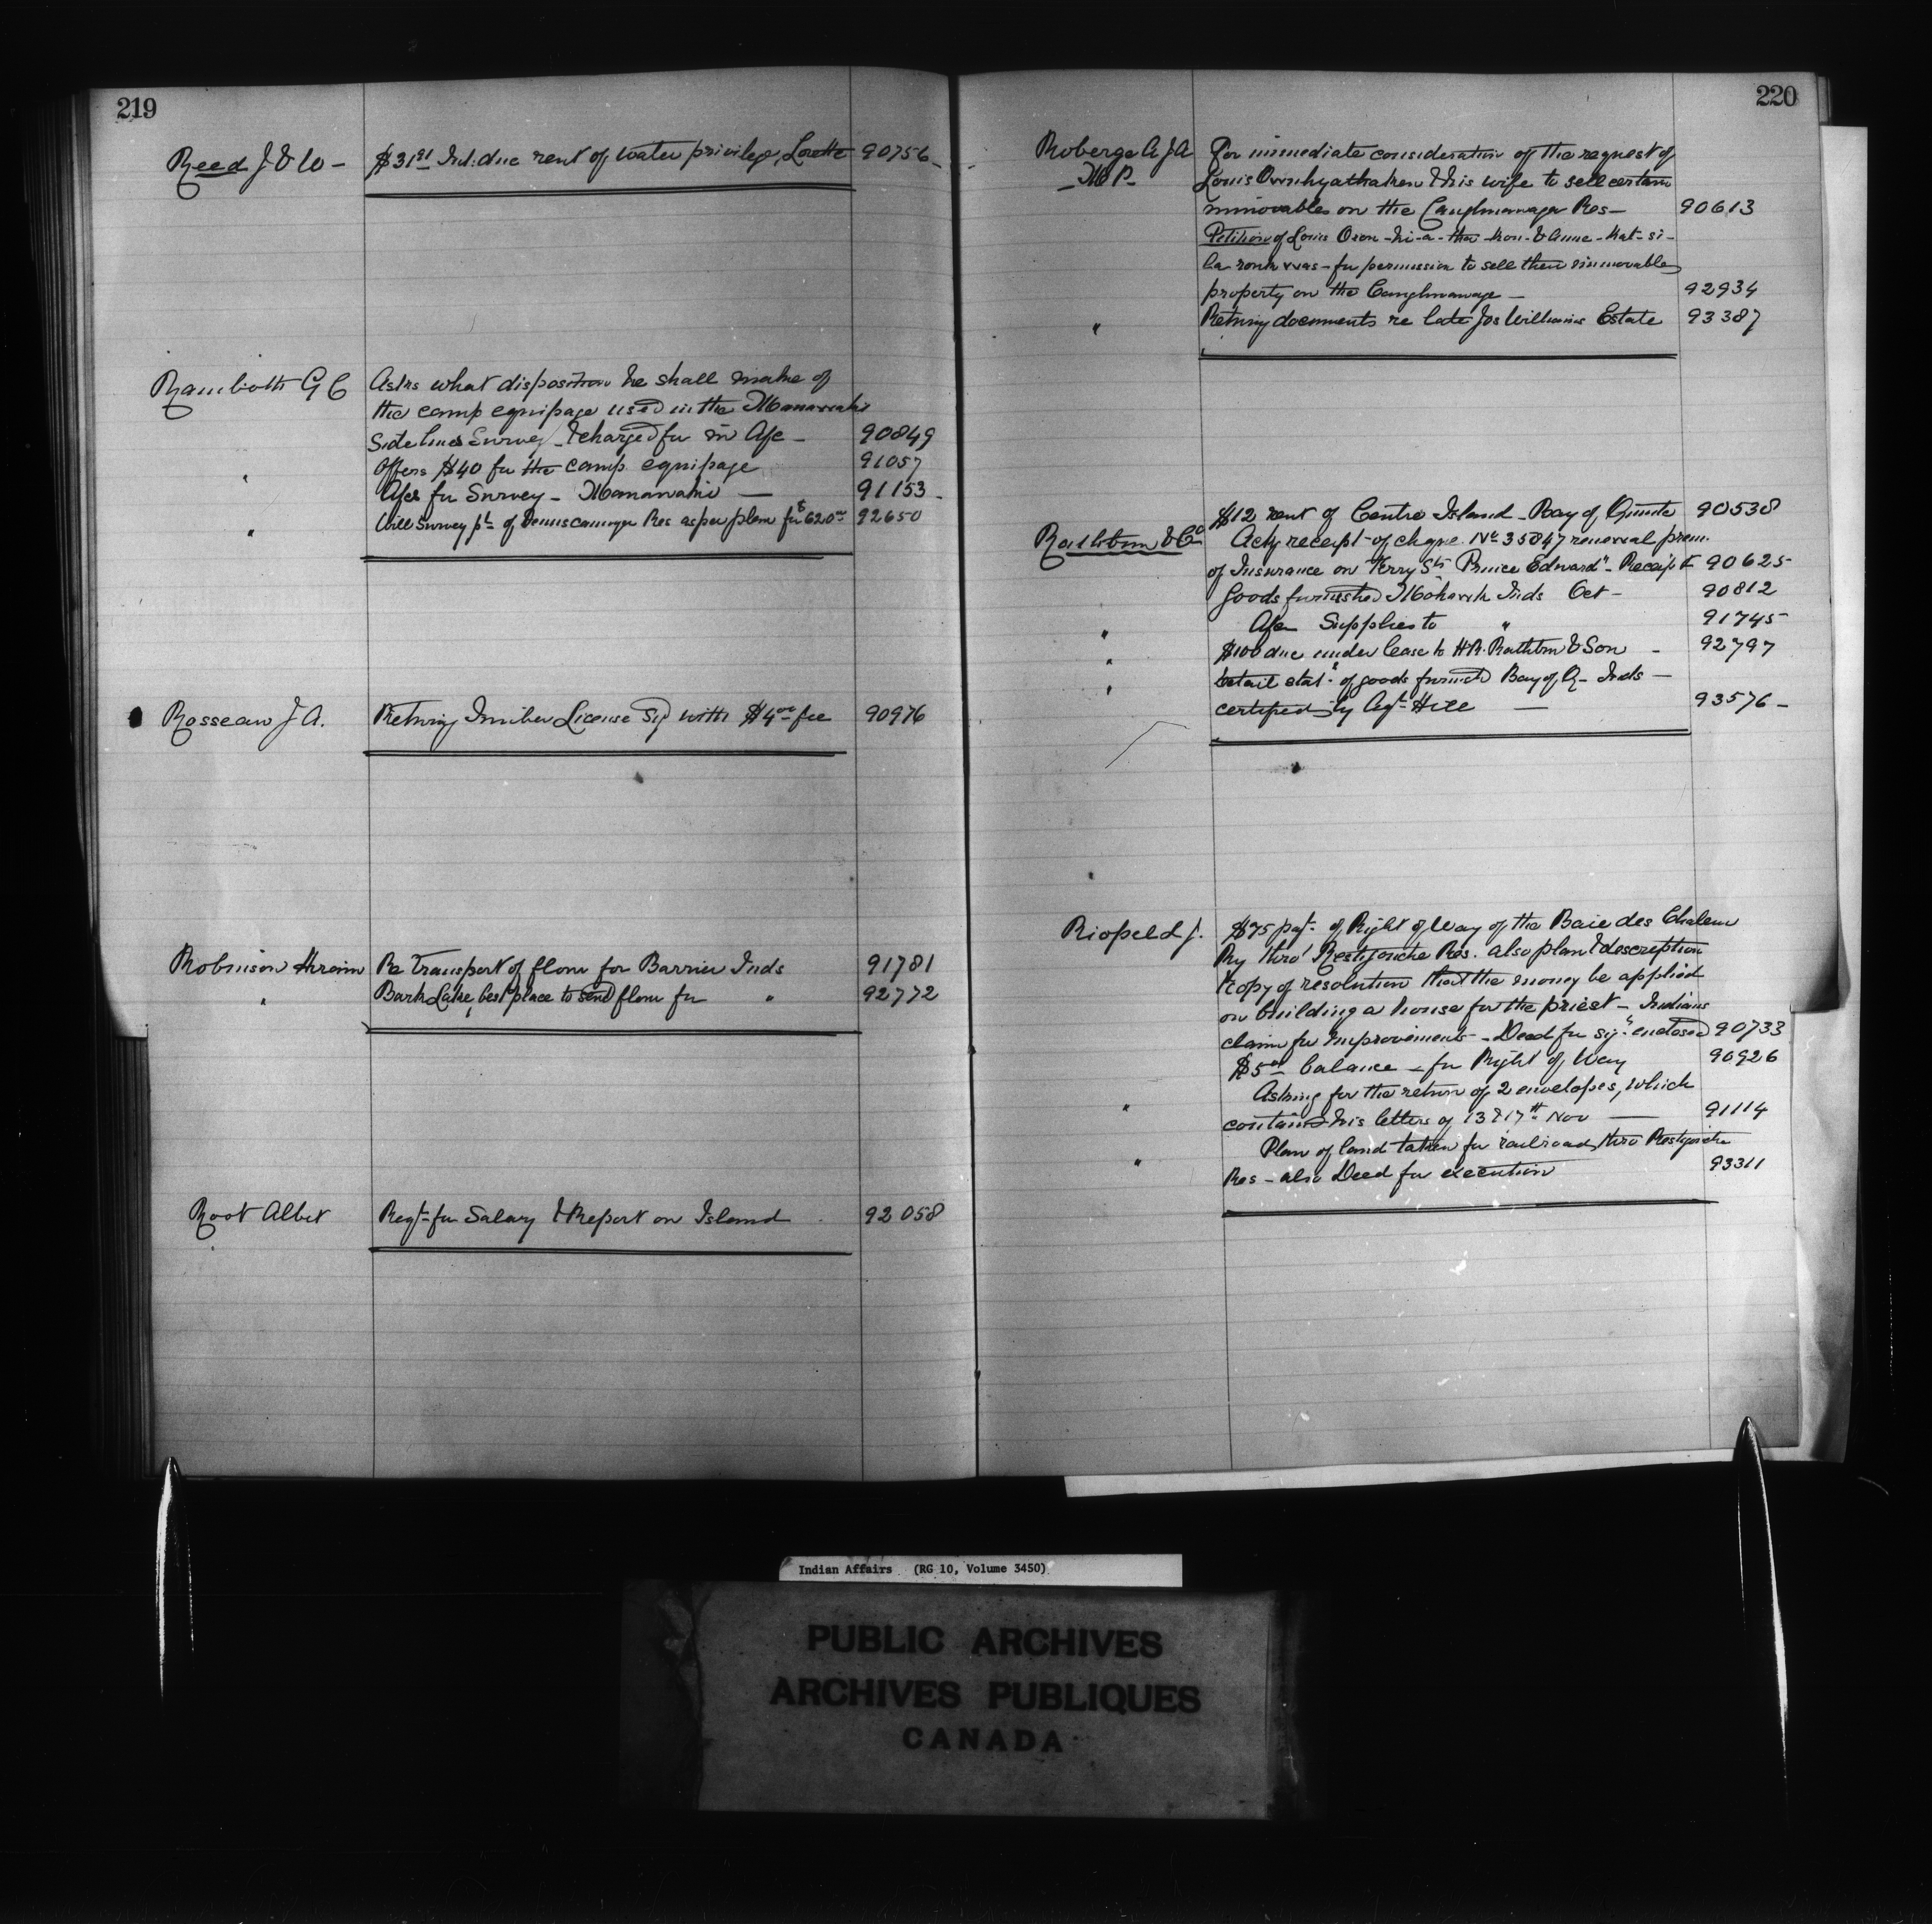 219
Reed J & W - $31.91 Int: due rent of water privilege, Lorette 90756-
Ramboth G C Asks what disposition he shall make of
the camp equipage used in the Manawaki
Side lines Survey - & charged for in A/c - 90849
" Offers $40 for the camp equipage 91057
A/cs for Survey - Manawaki — 91153-
" Will Survey pt of Temiscamingue Res as per plan for $620.00 92650
Rosseau J A. Returning Timber License Sgd with $4.00 fee 90976
Robinson Hiram Re Transport of flour for Barrier Inds 91781
" Bark Lake, best place to send flour for " 92772
Root Albert Reqt for Salary & Report on Island 92058
220
Roberge A J A For immediate consideration of the request of
M P- Louis & his wife to sell certain
immovables on the Caughnawaga Res- 90613
Petition of Louis Oron-hi-a-tha-kon & Anne-Kat-si-
for permission to sell their immovable
property on the Caughnawaga — 92934
" Returning documents re late Jos Williams Estate 93387
$12 rent of Centre Island - Bay of Quinte 90538
Rathbun & Co Ackg receipt of chque No 35847 renewal prem.
of Insurance on Ferry Str "Prince Edward" - Receipt 90625-
Goods furnished Mohawk Inds Oct - 90812
" A/c Supplies to " 91745-
" $100 due under lease to H.B. Rathbun & Son - 92797
" Detail statt of goods furnished Bay of Q- Inds —
certified by Agt Hill — 93576-
Riopel L J. $75 payt of Right of Way of the Baie des Chaleur
Ry thro' Restigouche Res. also plan & description
& copy of resolution that the money be applied
on building a house for the priest - Indians
claim for Improvements - Deed for sigr enclosed 90733
$5.00 balance - for Right of Way 90926
" Asking for the return of 2 envelopes, which
contained his letters of 13 & 17th Nov — 91114
" Plan of land taken for railroad thro Restigouche
Res - also Deed for execution 93311
Indian Affairs (RG 10, Volume 3450)
PUBLIC ARCHIVES
ARCHIVES PUBLIQUES
CANADA